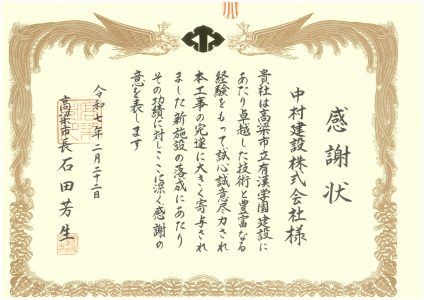 感謝状
中村建設株式会社様
貴社は高梁市立有漢学園建設に
あたり卓越した技術と豊富なる
経験をもって誠心誠意尽力され
本工事の完遂に大きく寄与され
ました新施設の落成にあたり
その功績に対しここに深く感謝の
意を表します
令和七年二月二十二日
高梁市長 石田芳生